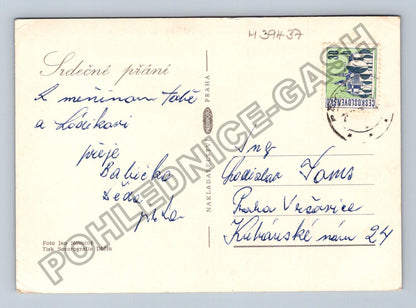 M 39437
Srdečné přání
K mečinam Tobě
a Lódíkovi
přeje
Babička
Děda
Foto Jan Novotný
Tisk Severografia Děčín
NAKLADATELSTVÍ
PRAHA
30
ČESKOSLOVENSKO
Ing
Ladislav
Praha Vršovice
Kubánské nám 24
POHLEDNICE-GASH